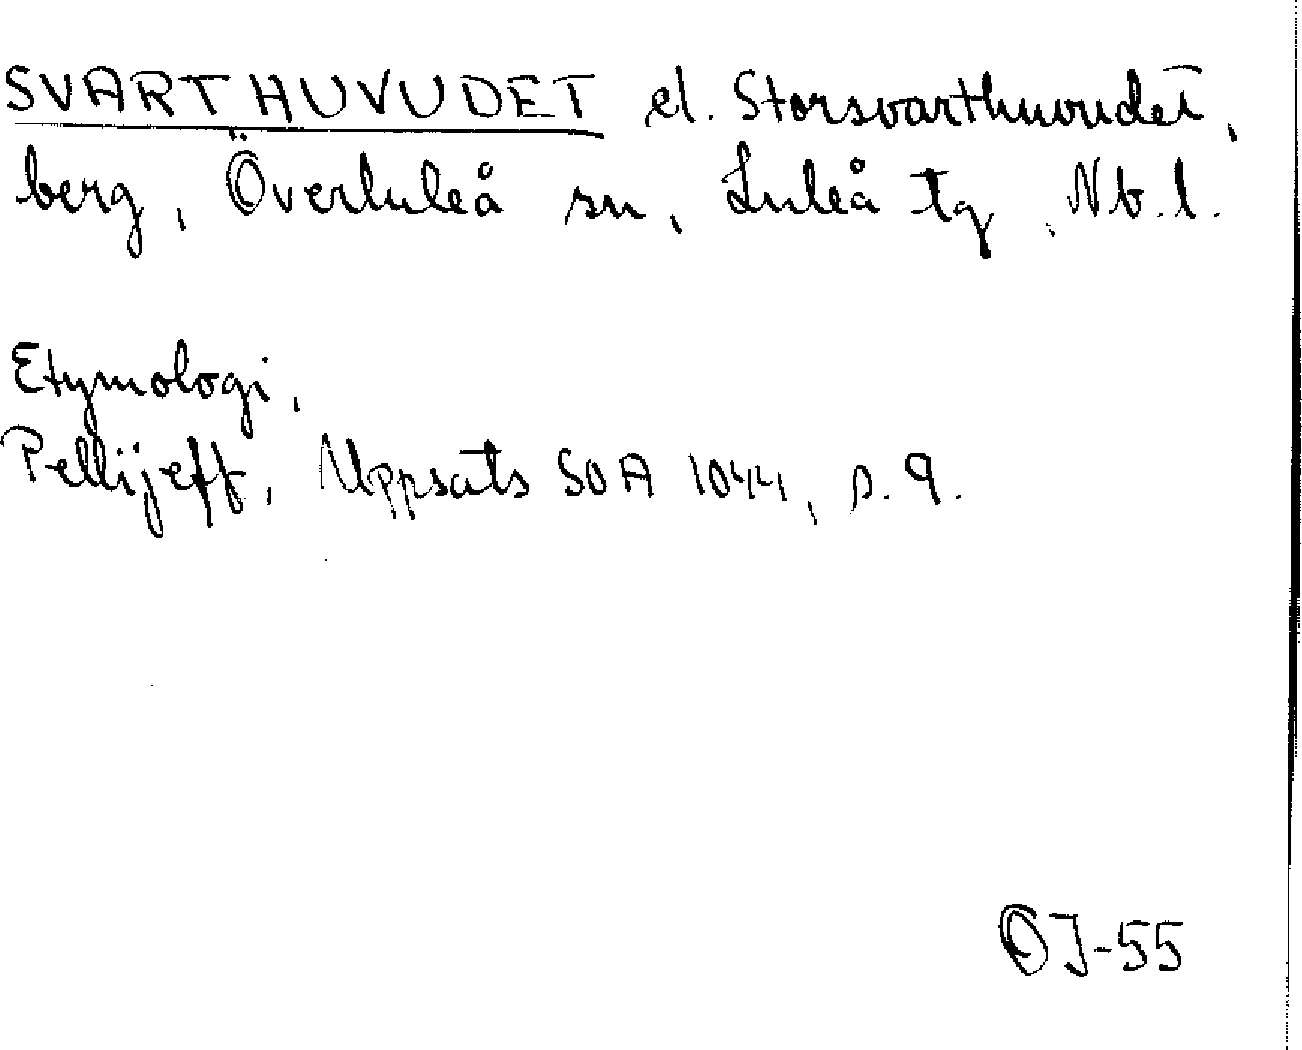 SVARTHUVUDET el. Storsvarthuvudet,
berg, Överluleå sn, Luleå tg, Nb.l.
Etymologi,
Pellijeff, Uppsats SOA 1044, s. 9.
OJ-55